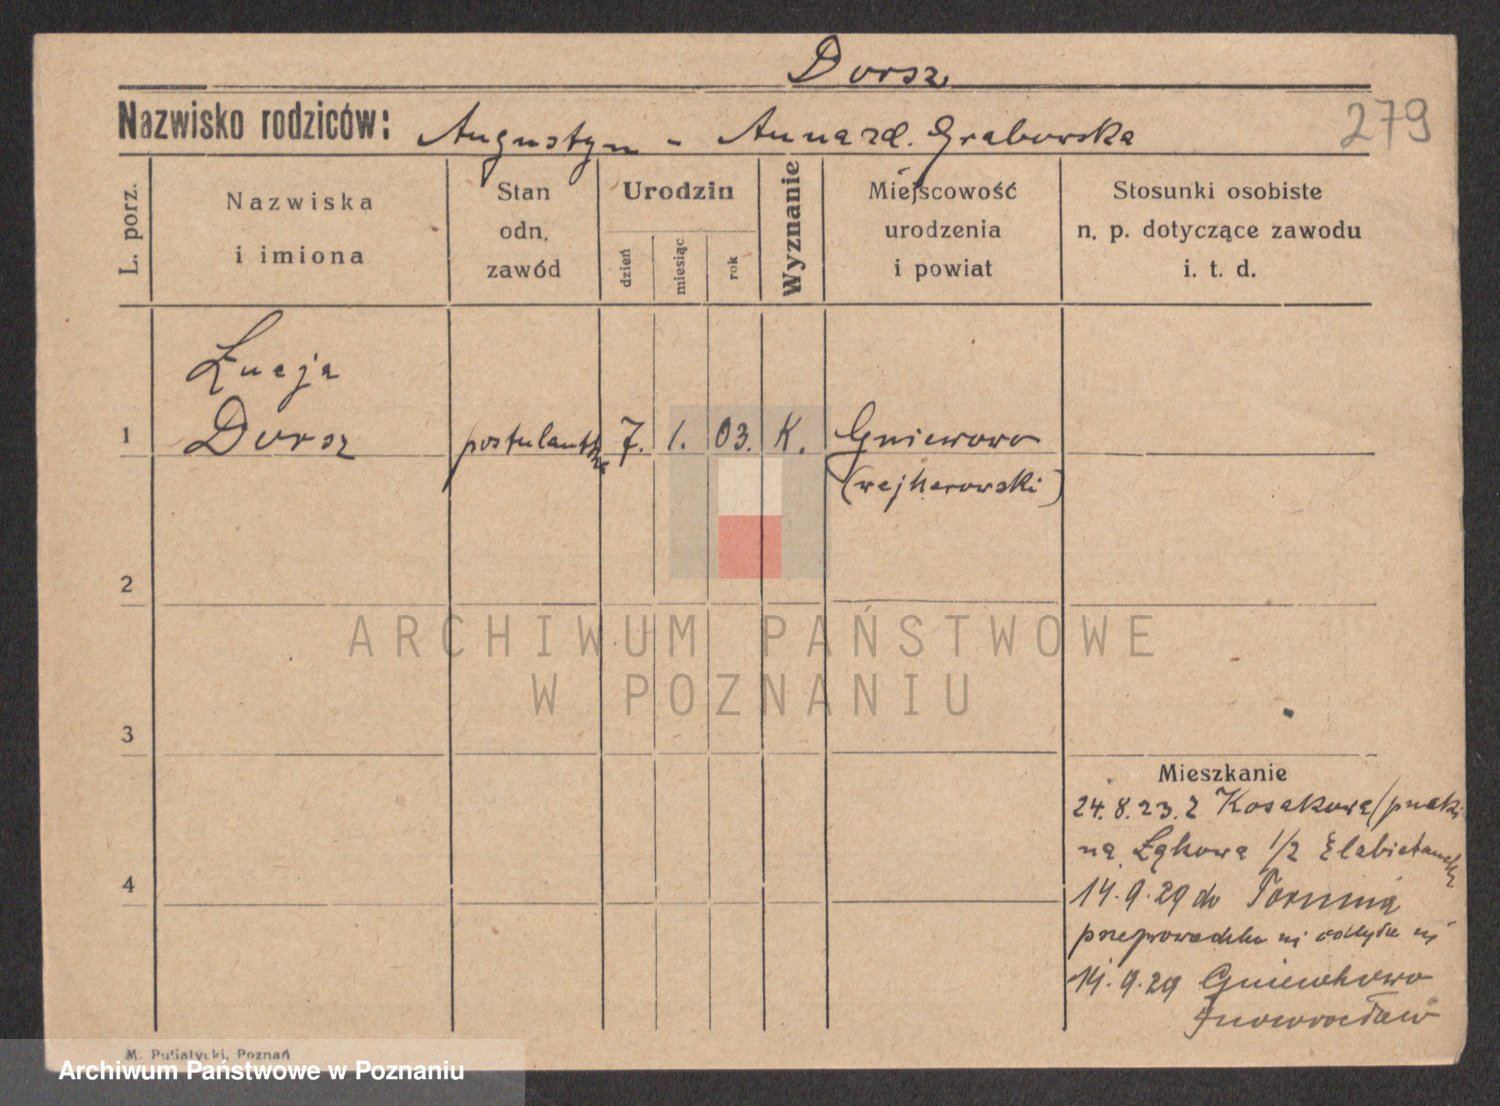 Dorsz
279
Nazwisko rodziców: Augustyn - Anna zd. Grabowska
L. porz.
Nazwiska
i imiona
Stan
odn.
zawód
Urodzin
dzień
miesiąc
rok
Wyznanie
Miejscowość
urodzenia
i powiat
Stosunki osobiste
n. p. dotyczące zawodu
i. t. d.
Łucja
1 Dorsz postulantka 7. 1. 03. K. Gniewowo
(wejherowski)
2
ARCHIWUM PAŃSTWOWE
W POZNANIU
3
Mieszkanie
24.8.23. z Kosakowa (pucki
na Łąkowa 1/2 Elżbietanek
4
14.9.29 do Torunia
przeprowadzka się odbyła
14.9.29 Gniewkowo
Inowrocław
M. Putiatycki, Poznań
Archiwum Państwowe w Poznaniu